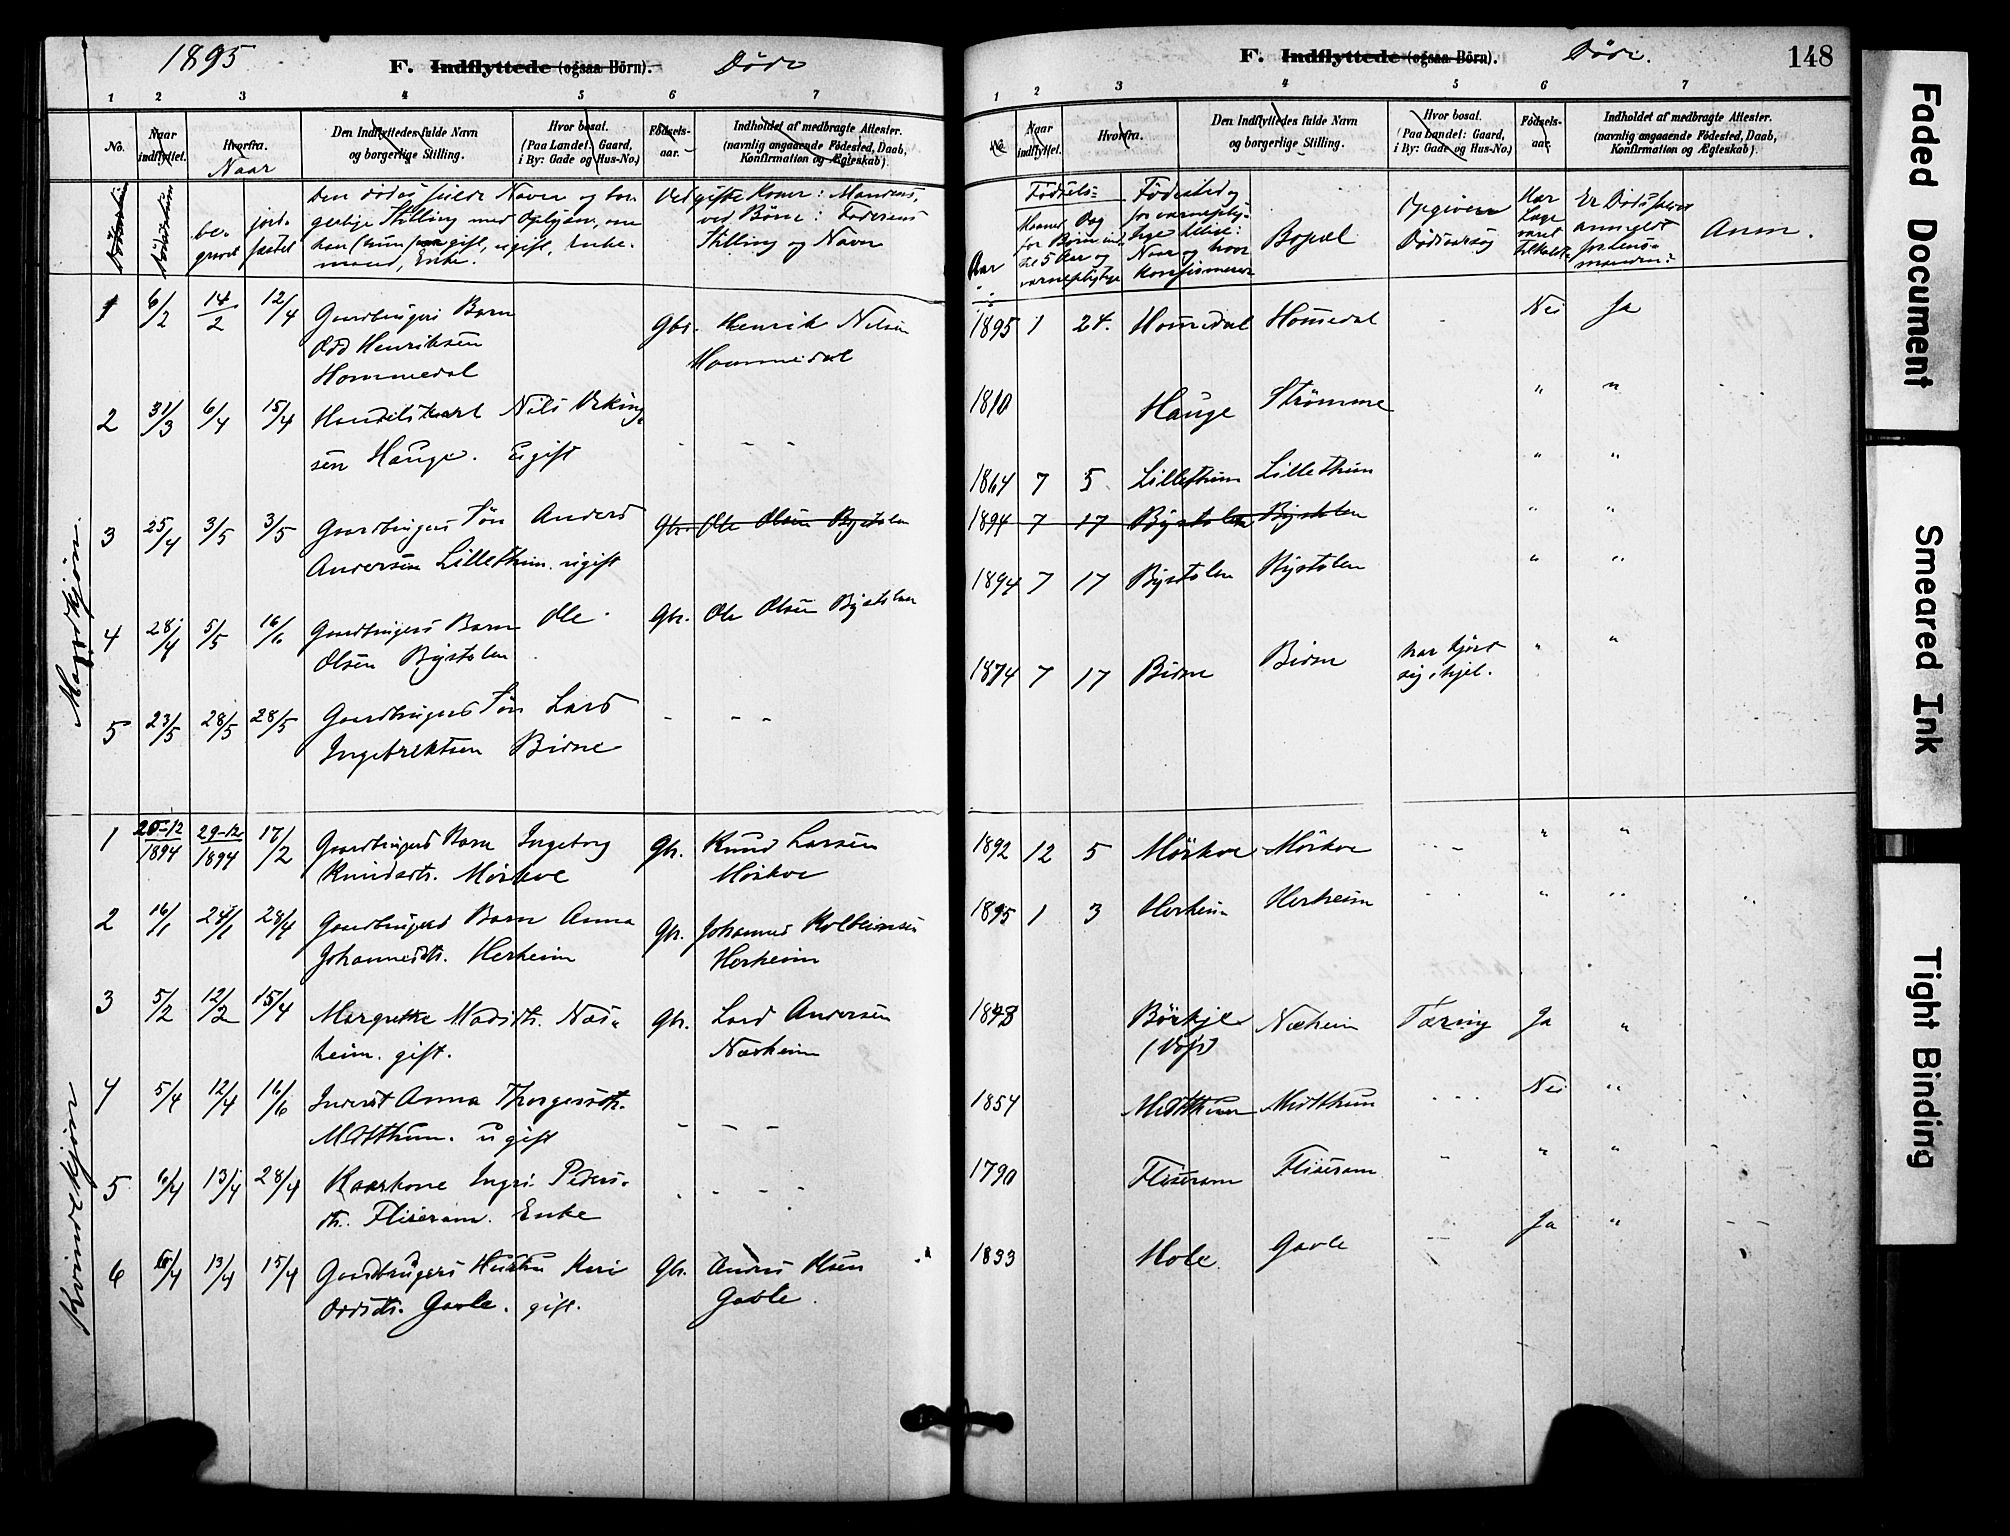 1895
F. Indflyttede (ogsaa Børn). Døde
1 2 3 4 5 6 7
No.
Naar indflyttet.
Hvorfra.
Naar
Den Indflyttedes fulde Navn og borgerlige Stilling.
Hvor bosat. (Paa Landet: Gaard, i By: Gade og Hus-No.)
Fødsels-aar.
Indholdet af medbragte Attester. (navnlig angaaende Fødested, Daab, Konfirmation og Ægteskab).
be-gravet
jord-fæstet
Den dødes fulde Navn og bor-
gerlige Stilling med Oplysn. om
han (hun) var gift, ugift, Enke-
mand, Enke.
Ved gifte Koner: Mandens,
ved Børn: Faderens
Stilling og Navn
Mandkjøn.
1 6/2 14/2 12/4 Gaardbrugers Barn
Odd Henriksen
Hommedal
Gbr. Henrik Nilsen
Hommedal
2 31/3 6/4 15/4 Handelskarl Nils Viking-
sen Hauge. ugift
- - -
3 25/4 3/5 3/5 Gaardbrugers Søn Anders
Andersen Lillethun. ugift
Gbr. Ole Olsen Bystølen
4 28/4 5/5 16/6 Gaardbrugers Barn Ole
Olsen Bystølen
Gbr. Ole Olsen Bystølen
5 23/5 28/5 28/5 Gaardbrugers Søn Lars
Ingebrektsen Bidne
- - -
Kvindekjøn
1 20-12/1894 29-12/1894 17/2 Gaardbrugers Barn Ingeborg
Knudsdtr. Mørkve
Gbr. Knud Larsen
Mørkve
2 16/1 24/1 28/4 Gaardbrugers Barn Anna
Johannesdtr. Herheim
Gbr. Johannes Kolbeinsen
Herheim
3 5/2 12/2 15/4 Margrethe Madsdtr. Næs-
heim. gift.
Gbr. Lars Andersen
Næsheim
4 5/4 12/4 16/6 Inderst Anna Thorgersdtr.
Midtthun. ugift
- - -
5 6/4 13/4 28/4 Kaarkone Ingri Peders-
dtr. Fliseram. Enke
- - - -
6 6/4 13/4 15/4 Gaardbrugers Hustru Kari
Oddsdtr. Gavle. gift.
Gbr. Anders Ksen
Gavle.
F. Indflyttede (ogsaa Børn). Døde. 148
1 2 3 4 5 6 7
No.
Naar indflyttet.
Hvorfra.
Den Indflyttedes fulde Navn og borgerlige Stilling.
Hvor bosat. (Paa Landet: Gaard, i By: Gade og Hus-No.)
Fødsels-aar.
Indholdet af medbragte Attester. (navnlig angaaende Fødested, Daab, Konfirmation og Ægteskab).
Fødsels-
Aar
Maaned Dag
for Børn ind
til 5 Aar og
værnepligtige
Fødested og
for værneplig-
tige tillige:
Naar og hvor
konfirmeret
Bopæl
Opgiven
Dødsaarsag
Har
Læge
været
tilkaldt
Er Dødsfaldet
anmeldt
for Lens-
manden?
Anm.
1895 1 24. Hommedal Hommedal - Nei Ja
1810 Hauge Strømme " "
1864 7 5 Lillethun Lillethun " "
1894 7 17 Bystølen Bystølen " "
1894 7 17 Bystølen Bystølen " "
1874 7 17 Bidne Bidne har kjørt
sig ihjel. " "
1892 12 5 Mørkve Mørkve - - " "
1895 1 3 Herheim Herheim - - " "
1848 Børkje
(Voss) Næsheim Tæring Ja "
1854 Midtthun Midtthun - - - Nei "
1790 Fliseram Fliseram - " "
1833 Hole Gavle - Ja " - -
Faded Document
Smeared Ink
Tight Binding